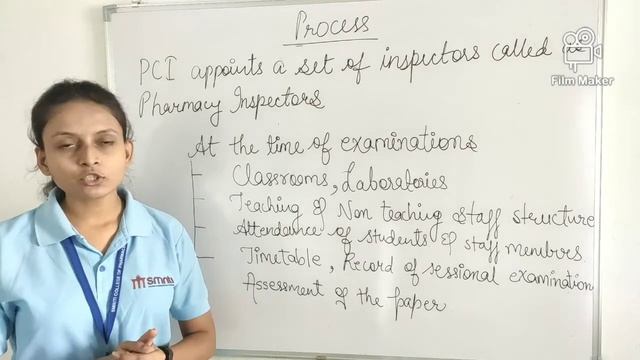 Process
PCI appoints a set of inspectors called
Pharmacy Inspectors
At the time of examinations
Classrooms, Laboratories
Teaching & Non teaching staff structure
Attendance of students & staff members.
Timetable, Record of sessional examination
Assessment of the paper
Film Maker
smriti
SMRITI COLLEGE OF PHARMA